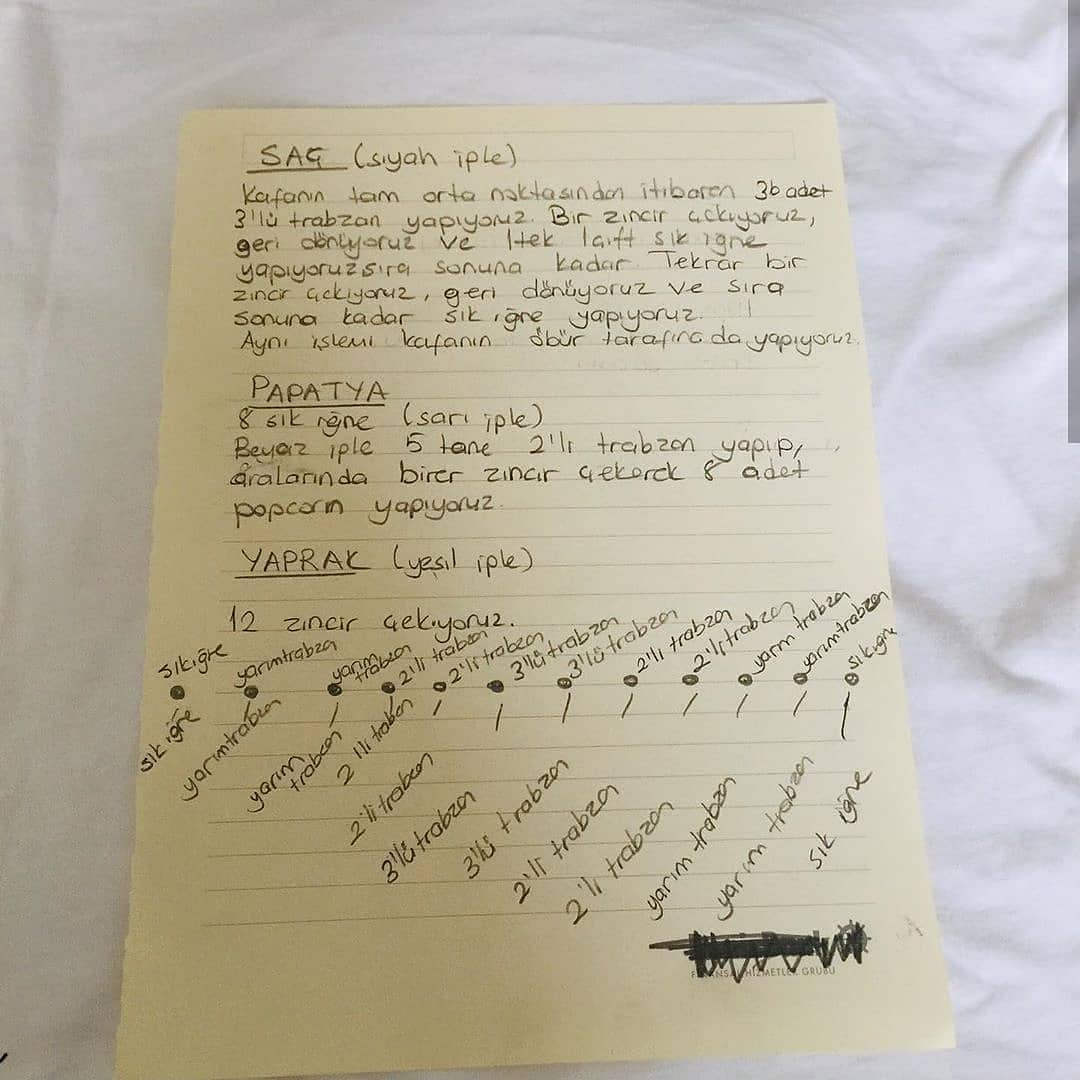 SAÇ (siyah iple)
Kafanın tam orta noktasından itibaren 36 adet
3'lü trabzan yapıyoruz. Bir zincir çekiyoruz,
geri dönüyoruz ve 1 tek 1 çift sık iğne
yapıyoruz sıra sonuna kadar. Tekrar bir
zincir çekiyoruz, geri dönüyoruz ve sıra
sonuna kadar sık iğne yapıyoruz.
Aynı işlemi kafanın öbür tarafına da yapıyoruz.
PAPATYA
8 sık iğne (sarı iple)
Beyaz iple 5 tane 2'li trabzan yapıp,
aralarında birer zincir çekerek 8 adet
popcorn yapıyoruz.
YAPRAK (yeşil iple)
12 zincir çekiyoruz.
sık iğne yarım trabzan yarım trabzan 2'li trabzan 2'li trabzan 3'lü trabzan 3'lü trabzan 2'li trabzan 2'li trabzan yarım trabzan yarım trabzan sık iğne
sık iğne yarım trabzan yarım trabzan 2'li trabzan 2'li trabzan 3'lü trabzan 3'lü trabzan 2'li trabzan 2'li trabzan yarım trabzan yarım trabzan sık iğne
HİZMETLER GRUBU